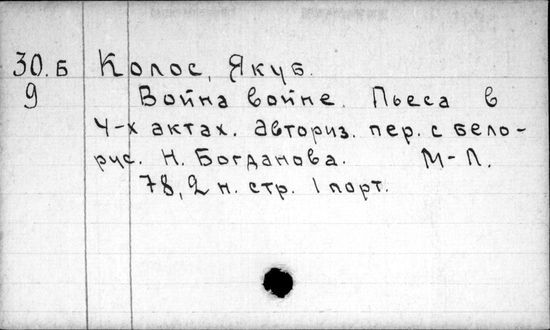 30.Б Колос, Якуб.
9 Война войне. Пьеса в
4-х актах. Авториз. пер. с бело-
рус. Н. Богданова. М-Л.
78, 2 н. стр. 1 порт.